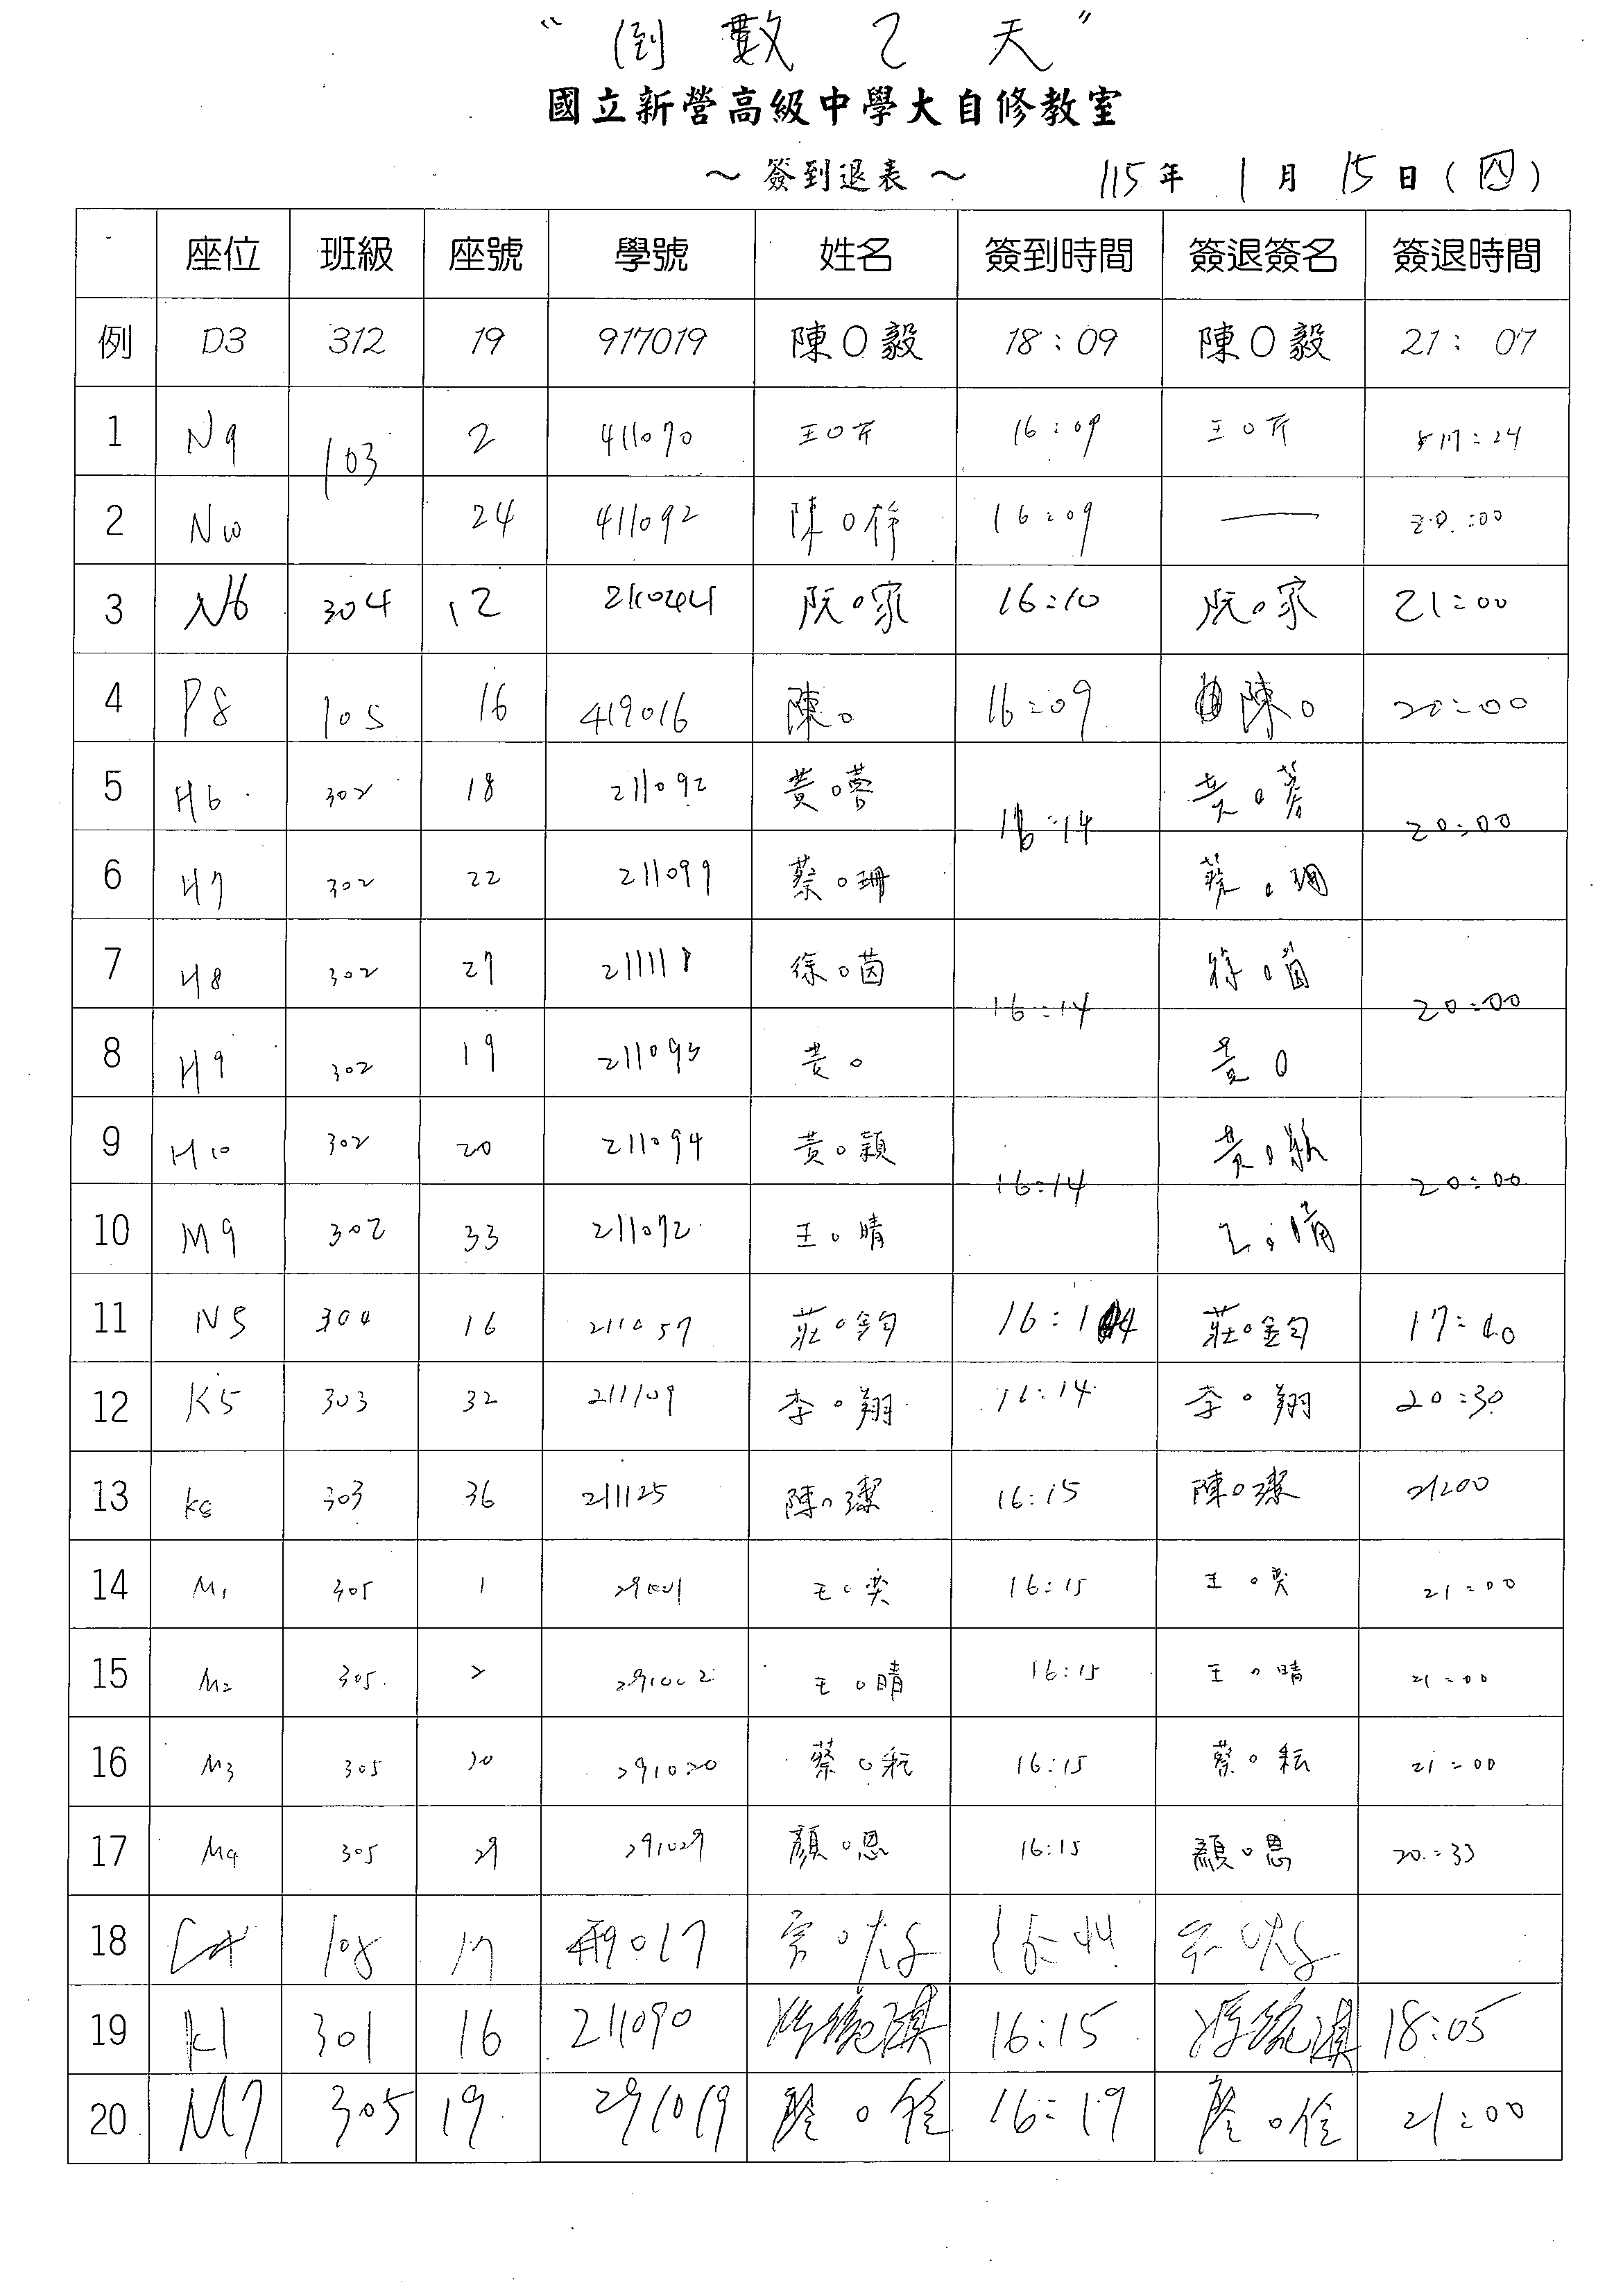 “倒數2天”
國立新營高級中學大自修教室
～ 簽到退表 ～ 115年 1月 15日(四)
座位 班級 座號 學號 姓名 簽到時間 簽退簽名 簽退時間
例 D3 312 19 917019 陳O毅 18:09 陳O毅 21:07
1 N9 103 2 411070 王O芹 16:09 王O芹 17:24
2 N10 24 411092 陳O 16:09 — 20:00
3 N6 304 12 211044 阮O家 16:10 阮O家 21:00
4 P8 105 16 419016 陳O 16:09 陳O 20:00
5 H6 302 18 211092 黃O蓉 16:14 黃O蓉 20:00
6 H7 302 22 211099 蔡O珊 蔡O珊
7 H8 302 27 211118 徐O茵 16:14 徐O茵 20:00
8 H9 302 19 211093 黃O 黃O
9 H10 302 20 211094 黃O穎 16:14 黃O穎 20:00
10 M9 302 33 211072 王O晴 王O晴
11 N5 304 16 211057 莊O鈞 16:14 莊O鈞 17:40
12 K5 303 32 211109 李O翔 16:14 李O翔 20:30
13 K6 303 36 211125 陳O潔 16:15 陳O潔 21:00
14 M1 305 1 291001 王O奕 16:15 王O奕 21:00
15 M2 305 2 291002 王O晴 16:15 王O晴 21:00
16 M3 305 20 291020 蔡O耘 16:15 蔡O耘 21:00
17 M4 305 29 291029 顏O恩 16:15 顏O恩 20:33
18 108 17 019017
19 K1 301 16 211090 16:15 18:05
20 M7 305 19 291019 16:19 21:00